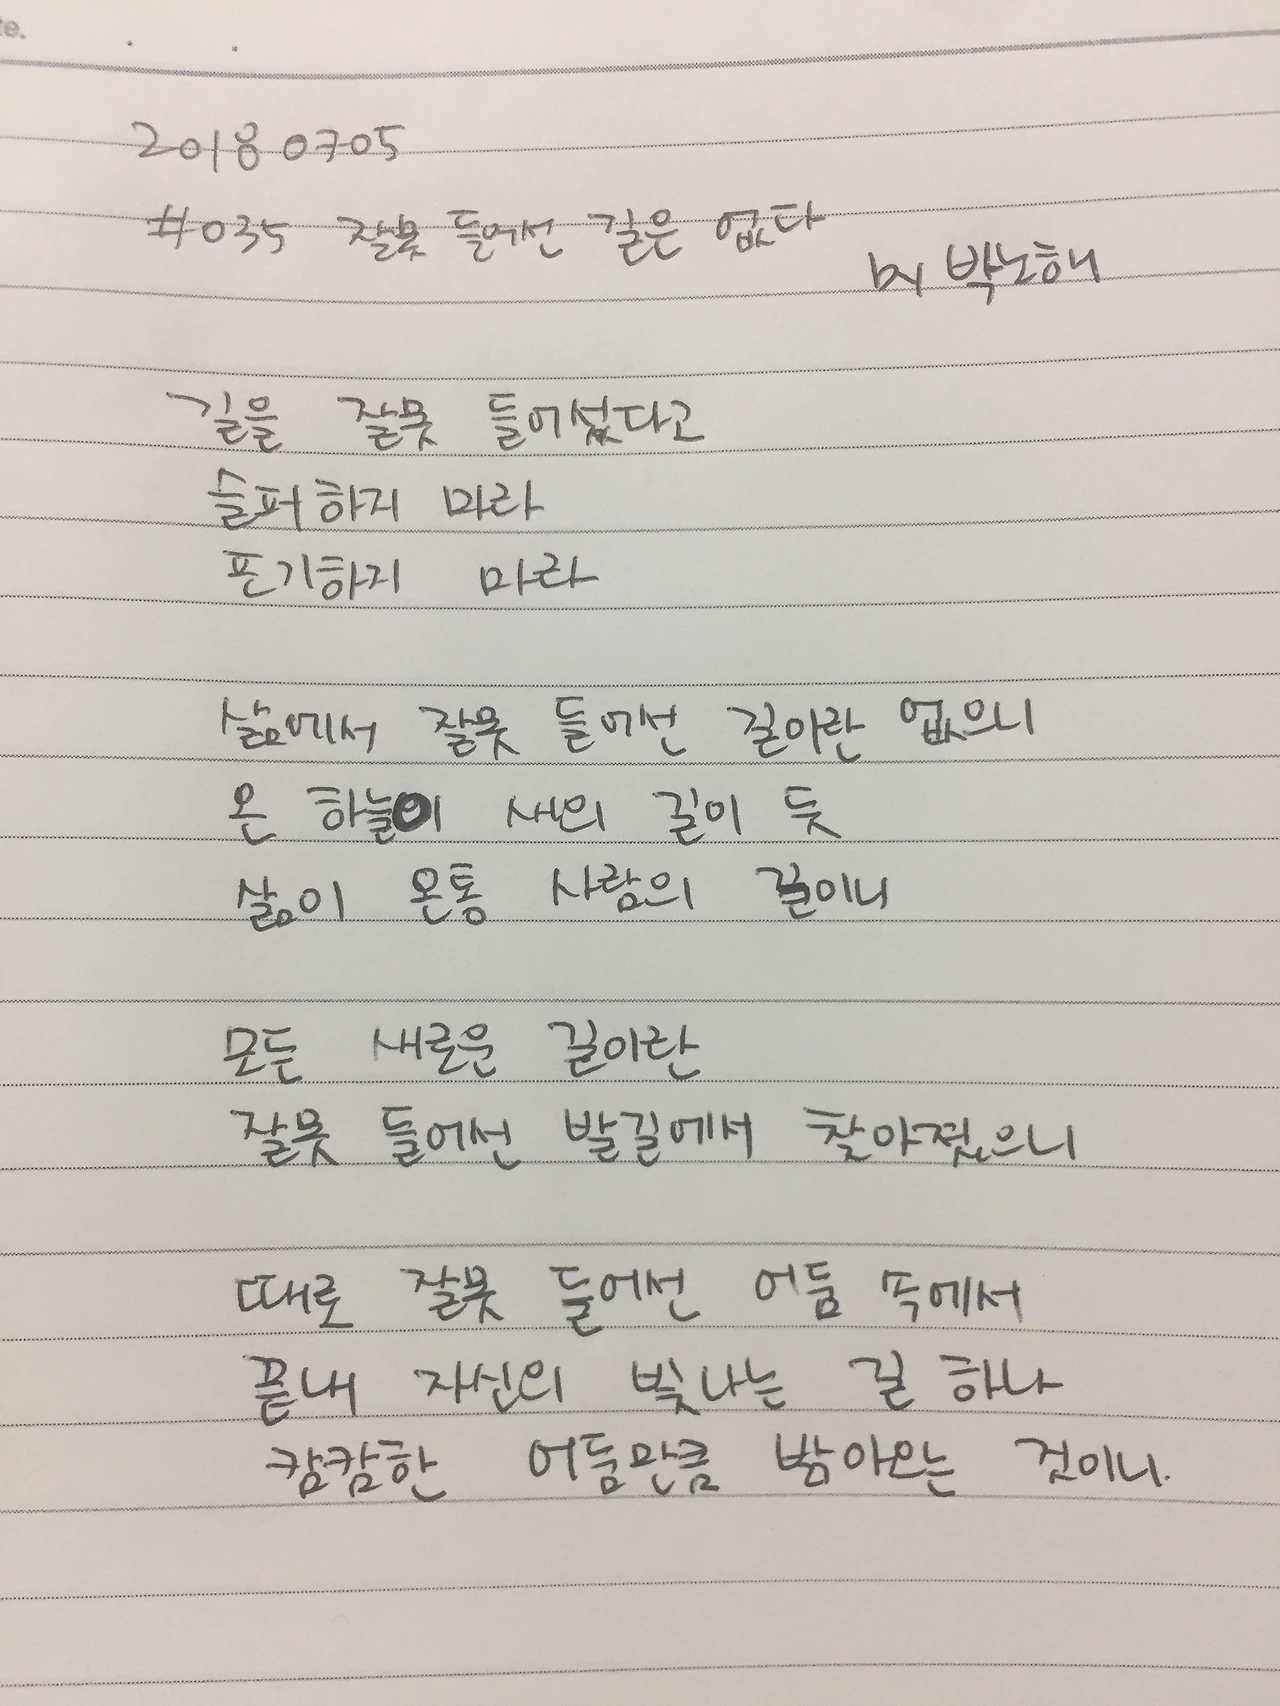 te.
20180705
#035 잘못 들어선 길은 없다
by 박노해
길을 잘못 들어섰다고
슬퍼하지 마라
포기하지 마라
삶에서 잘못 들어선 길이란 없으니
온 하늘이 새의 길이 듯
삶이 온통 사람의 길이니
모든 새로운 길이란
잘못 들어선 발길에서 찾아졌으니
때로 잘못 들어선 어둠 속에서
끝내 자신의 빛나는 길 하나
캄캄한 어둠만큼 밝아오는 것이니.